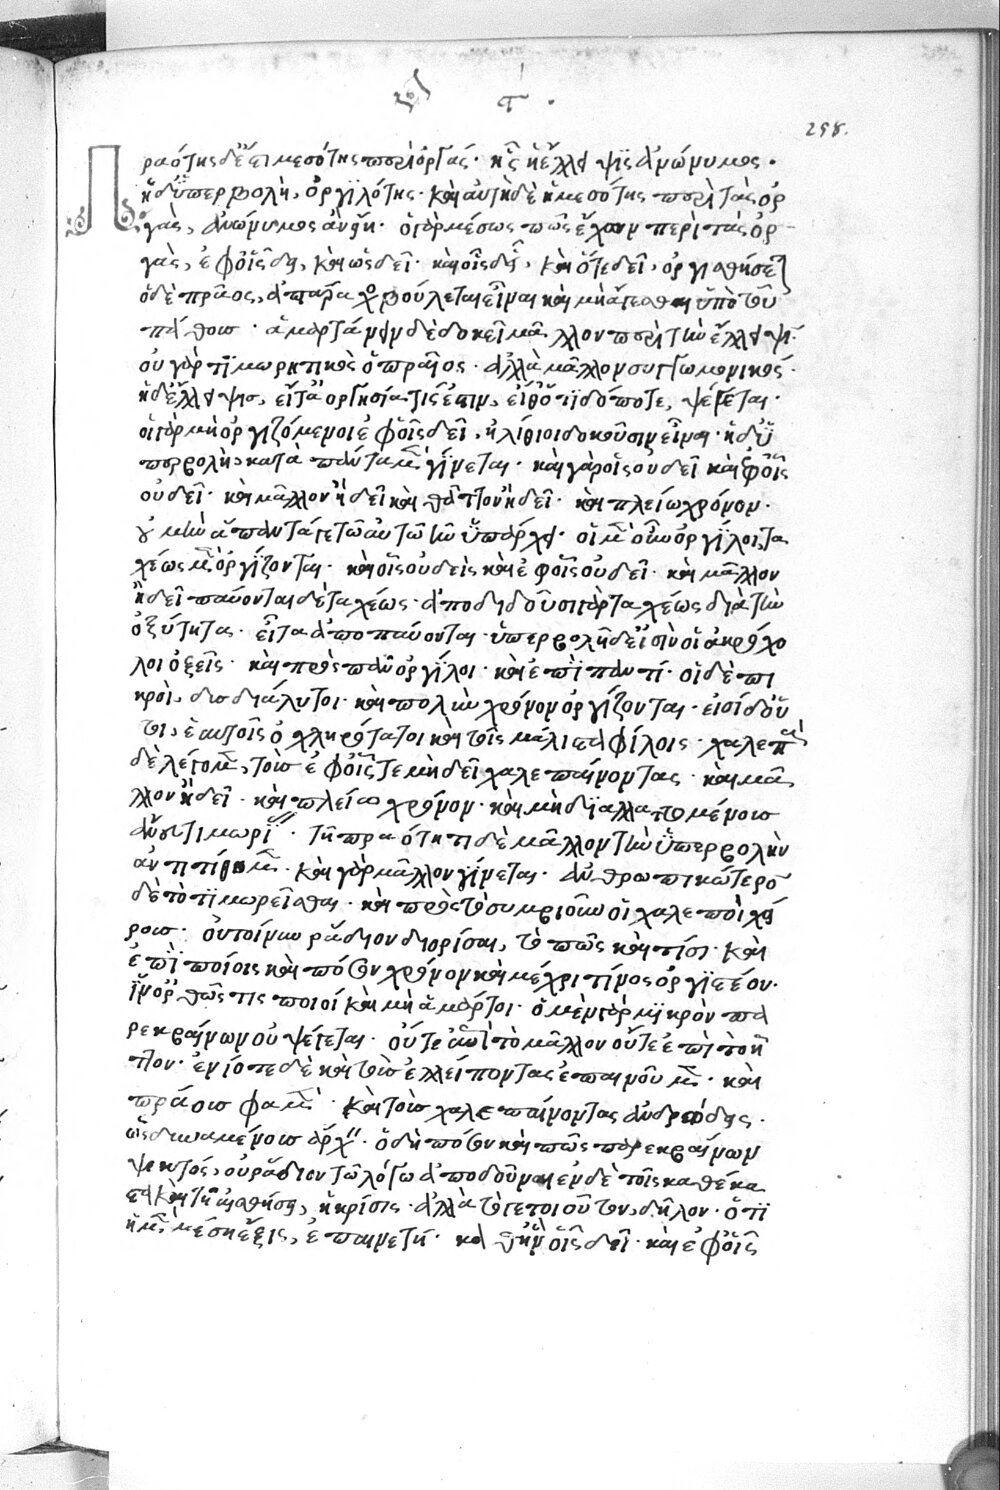 258.
Πραότης δέ ἐστι μεσότης περὶ ὀργάς· ἧς ἡ ἔλλειψις ἀνώνυμος·
ἡ δὑπερβολὴ, ὀργιλότης· καὶ αὐτὴ δὲ ἡ μεσότης περὶ τὰς ὀρ
γὰς, ἀνώνυμος ἂν εἴη· ὁ γὰρ μέσως πως ἔχων περὶ τὰς ὀρ
γὰς, ἐφοῖς δεῖ, καὶ ὡς δεῖ· καὶ οἷς δεῖ, καὶ ὅτε δεῖ, ὀργισθήσεται
ὁ δὲ πρᾶος, ἀτάραχος βούλεται εἶναι καὶ μὴ ἄγεσθαι ὑπὸ τοῦ
πάθους· ἁμαρτάνειν δὲ δοκεῖ μᾶλλον περὶ τὴν ἔλλειψιν·
οὐ γὰρ τιμωρητικὸς ὁ πραῖος· ἀλλὰ μᾶλλον συγγνωμονικός·
ἡ δἔλλειψις, εἴτ' ἀοργησία τίς ἐστιν, εἴθ' ὅ τι δή ποτε, ψέγεται·
οἱ γὰρ μὴ ὀργιζόμενοι ἐφοῖς δεῖ, ἠλίθιοι δοκοῦσιν εἶναι· ἡ δὑ
περβολὴ, κατὰ πάντα μὲν γίνεται· καὶ γὰρ οἷς οὐ δεῖ καὶ ἐφοῖς
οὐ δεῖ· καὶ μᾶλλον ἢ δεῖ καὶ θᾶττον ἢ δεῖ· καὶ πλείω χρόνον·
οὐ μὴν ἅπαντά γε τῷ αὐτῷ ὑπάρχει· οἱ μὲν οὖν ὀργίλοι, τα
χέως μὲν ὀργίζονται· καὶ οἷς οὐ δεῖ καὶ ἐφοῖς οὐ δεῖ· καὶ μᾶλλον
ἢ δεῖ παύονται δὲ ταχέως· ἀποδιδοῦσι γὰρ ταχέως διὰ τὴν
ὀξύτητα· εἶτα ἀποπαύονται· ὑπερβολῇ δεἰσὶν οἱ ἀκρόχο
λοι ὀξεῖς· καὶ πρὸς πᾶν ὀργίλοι· καὶ ἐπὶ παντί· οἱ δὲ πι
κροὶ, δυσδιάλυτοι· καὶ πολὺν χρόνον ὀργίζονται· εἰσὶ δοὗ
τοι, ἑαυτοῖς ὀχληρότατοι καὶ τοῖς μάλιστα φίλοις· χαλεποὺς
δὲ λέγομεν, τοὺς ἐφοῖς τε μὴ δεῖ χαλεπαίνοντας· καὶ μᾶ
λλον ἢ δεῖ· καὶ πλείω χρόνον· καὶ μὴ διαλλαττομένους
ἄνευ τιμωρίας· τῇ πραότητι δὲ μᾶλλον τὴν ὑπερβολὴν
ἀντιτίθεμεν· καὶ γὰρ μᾶλλον γίνεται· ἀνθρωπικώτερον
δὲ τὸ τιμωρεῖσθαι· καὶ πρὸς τὸ συμβιοῦν οἱ χαλεποὶ χεί
ρους· οὐ τοίνυν ῥάδιον διορίσαι, τὸ πῶς καὶ τίσι· καὶ
ἐπὶ ποίοις καὶ πόσον χρόνον καὶ μέχρι τίνος ὀργιστέον·
ἵν' ὀρθῶς τις ποιοῖ καὶ μὴ ἁμάρτοι· ὁ μὲν γὰρ μικρὸν πα
ρεκβαίνων οὐ ψέγεται· οὔτε ἐπὶ τὸ μᾶλλον οὔτε ἐπὶ τὸ ἧ
ττον· ἐνίοτε δὲ καὶ τοὺς ἐλλείποντας ἐπαινοῦμεν· καὶ
πράους φαμέν· καὶ τοὺς χαλεπαίνοντας ἀνδρώδεις·
ὡς δυναμένους ἄρχειν· ὁ δὴ πόσον καὶ πῶς παρεκβαίνων
ψεκτός, οὐ ῥάδιον τῷ λόγῳ ἀποδοῦναι ἐν δὲ τοῖς καθέκα
στα καὶ τῇ αἰσθήσει, ἡ κρίσις· ἀλλὰ τό γε τοιοῦτον, δῆλον· ὅτι
ἡ μὲν μέση ἕξις, ἐπαινετή· καθ' ἣν οἷς δεῖ· καὶ ἐφοῖς